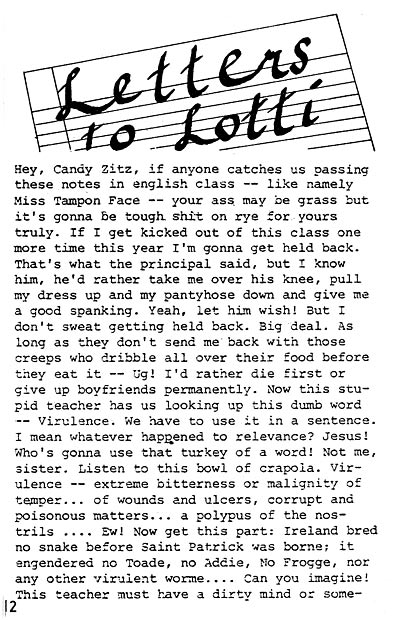 Letters
to Lotti
Hey, Candy Zitz, if anyone catches us passing
these notes in english class -- like namely
Miss Tampon Face -- your ass may be grass but
it's gonna be tough shit on rye for yours
truly. If I get kicked out of this class one
more time this year I'm gonna get held back.
That's what the principal said, but I know
him, he'd rather take me over his knee, pull
my dress up and my pantyhose down and give me
a good spanking. Yeah, let him wish! But I
don't sweat getting held back. Big deal. As
long as they don't send me back with those
creeps who dribble all over their food before
they eat it -- Ug! I'd rather die first or
give up boyfriends permanently. Now this stu-
pid teacher has us looking up this dumb word
-- Virulence. We have to use it in a sentence.
I mean whatever happened to relevance? Jesus!
Who's gonna use that turkey of a word! Not me,
sister. Listen to this bowl of crapola. Vir-
ulence -- extreme bitterness or malignity of
temper... of wounds and ulcers, corrupt and
poisonous matters... a polypus of the nos-
trils .... Ew! Now get this part: Ireland bred
no snake before Saint Patrick was borne; it
engendered no Toade, no Addie, No Frogge, nor
any other virulent worme.... Can you imagine!
This teacher must have a dirty mind or some-
12